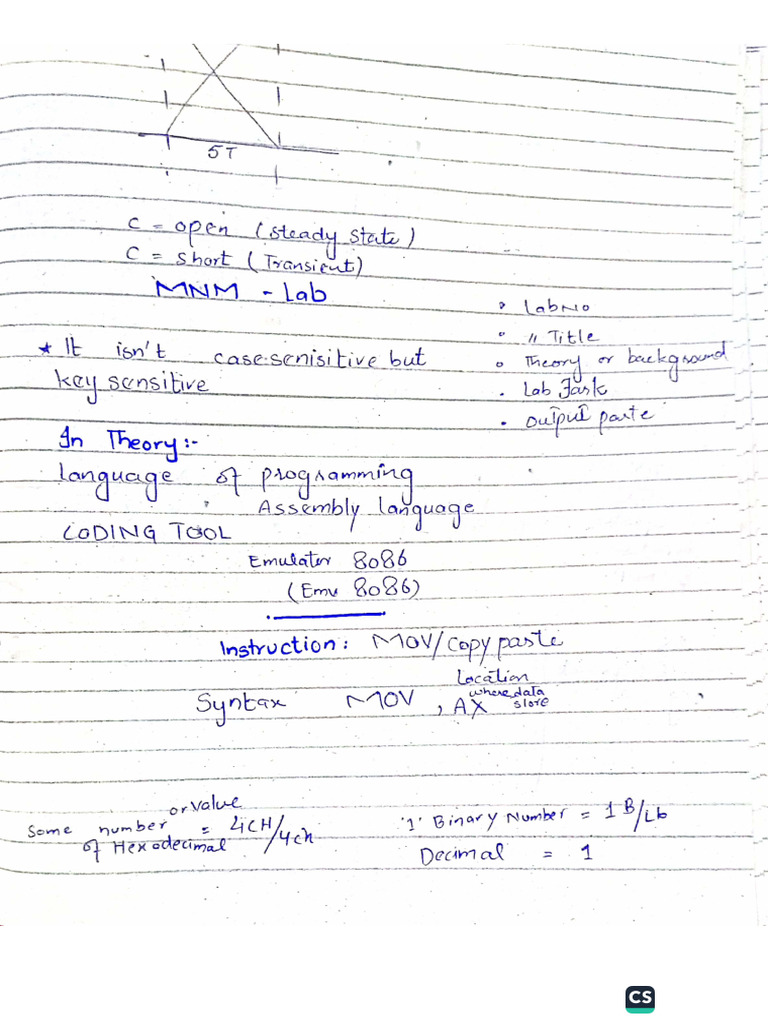 5T
C = open (steady state)
C = short (Transient)
MNM - Lab
• Lab No
• 〃 Title
• Theory or background
• Lab Task
• output paste
* It isn't case senisitive but
key sensitive
In Theory:-
Language of programming
Assembly language
CODING TOOL
Emulator 8086
(Emu 8086)
Instruction: MOV/copy paste
Location
where data
store
Syntax MOV , AX
or value
some number = 4CH/4ch
of Hexodecimal
'1' Binary Number = 1B/1b
Decimal = 1
CS